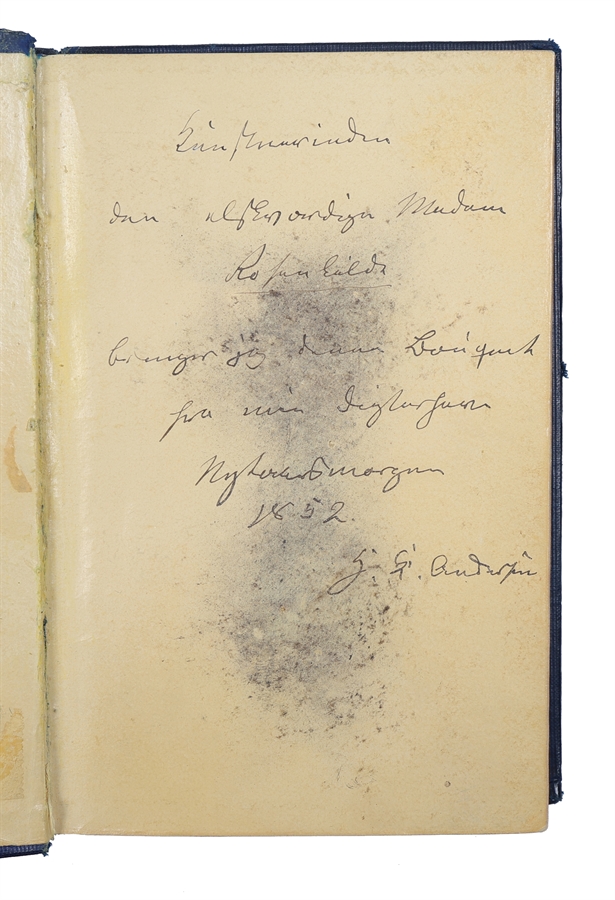 Kunstnerinden
den elskværdige Madam
Rosenkilde
bringer jeg denne Bouquet
fra min Digterhave
Nytaarsmorgen
1852.
H. C. Andersen